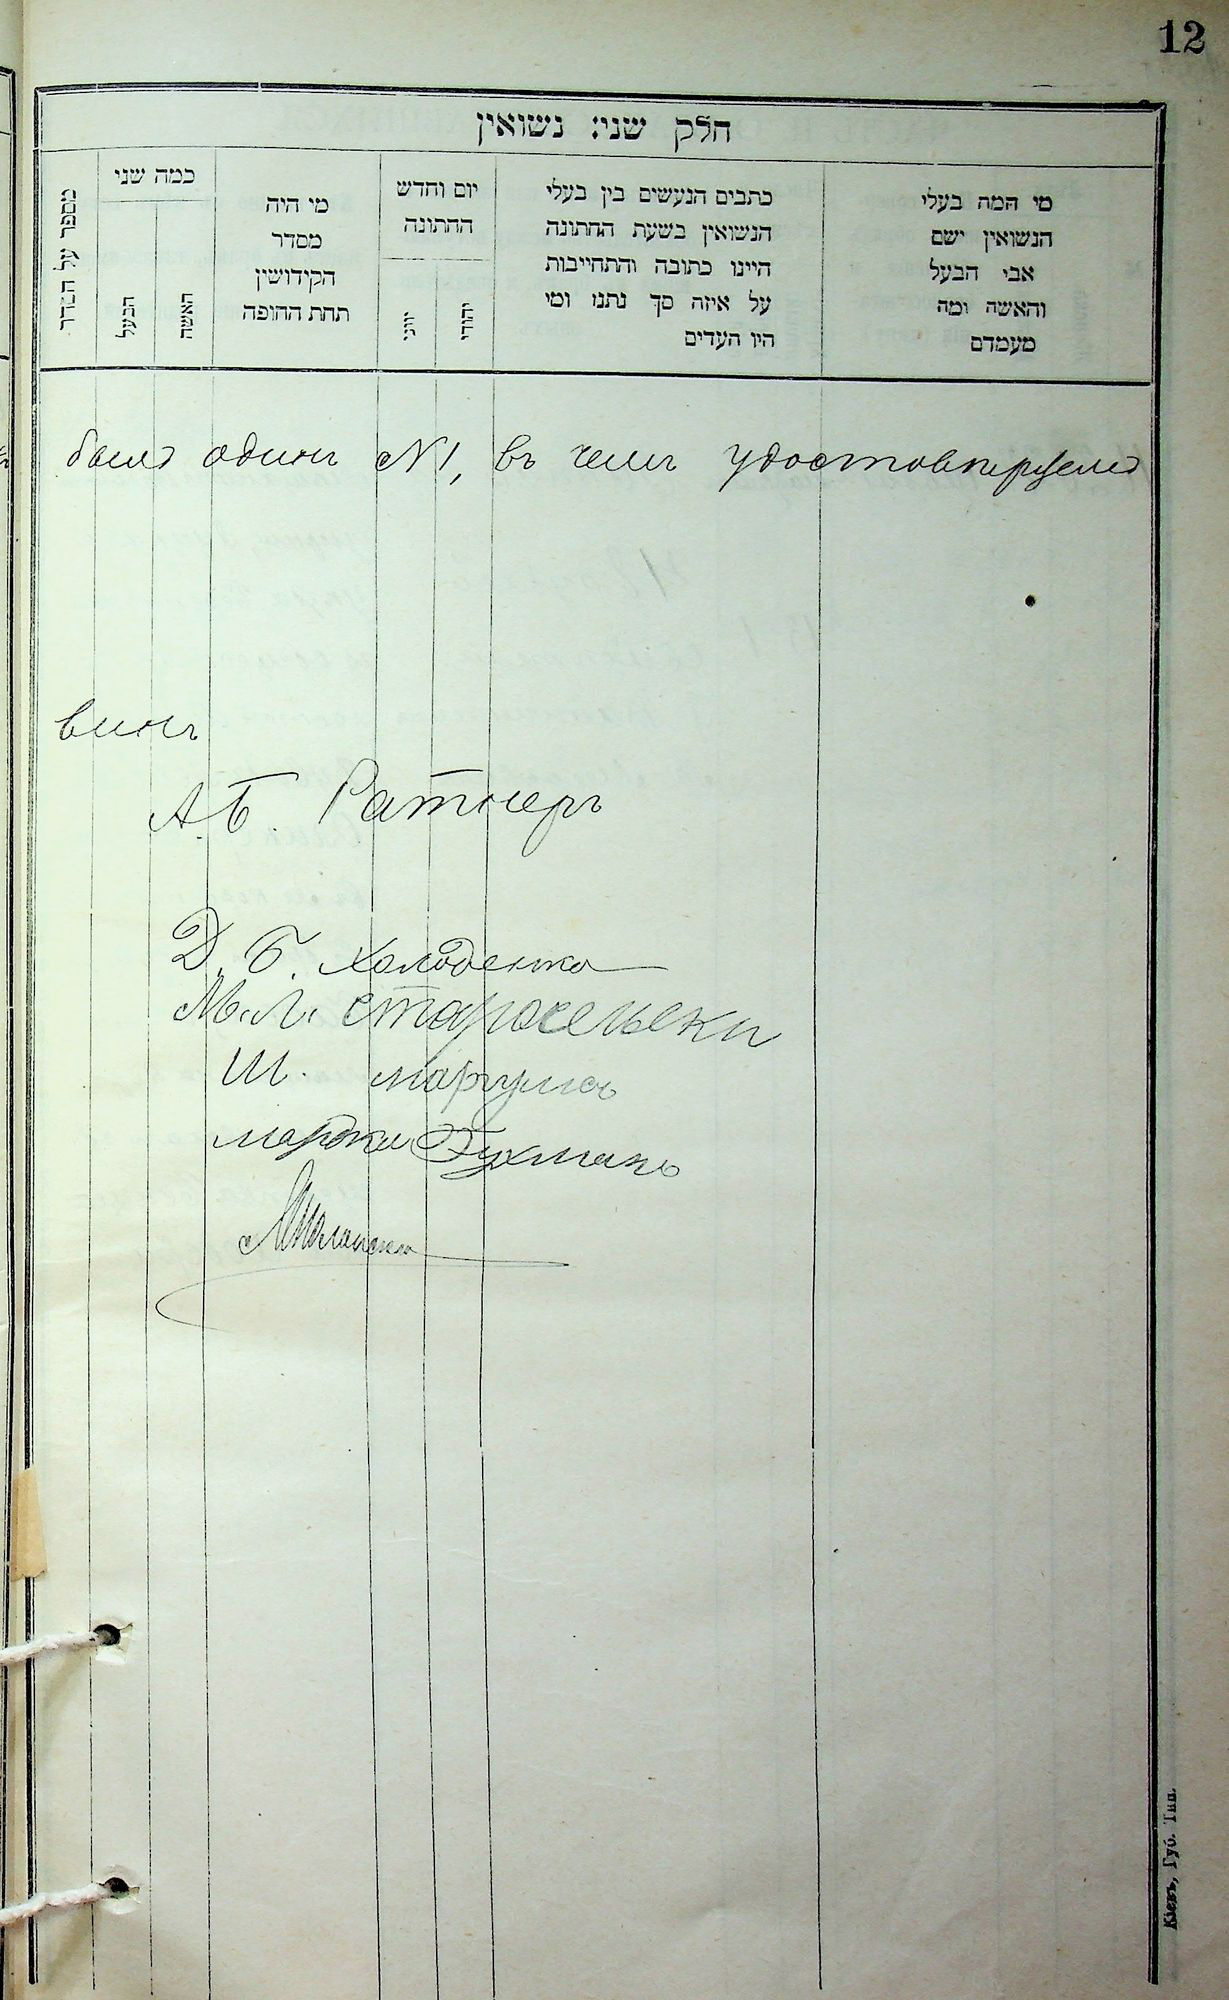 12
חלק שני: נשואין
מספר על הסדר
כמה שני
הבעל
האשה
מי היה
מסדר
הקידושין
תחת החופה
יום וחדש
החתונה
יוני
יהודי
כתבים הנעשים בין בעלי
הנשואין בשעת החתונה
היינו כתובה והתחייבות
על איזה סך נתנו ומי
היו העדים
מי המה בעלי
הנשואין ושם
אבי הבעל
והאשה ומה
מעמדם
было одинъ №1, въ чемъ удостовѣряемъ
А. Б. Ратнеръ
Д. Б. Холоденко
М. Л. старосельски
Ш. маргулисъ
мордко Гухманъ
Кіевъ, Губ. Тип.